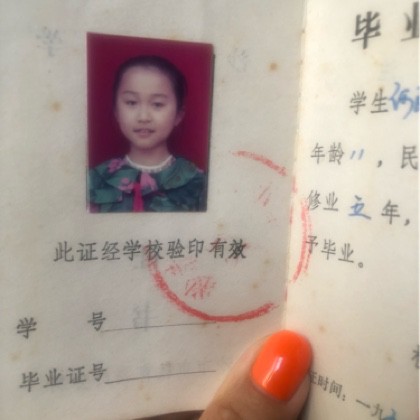 此证经学校验印有效
学 号
毕业证号
毕 业
学生
年龄 11 ，民
修业 五 年，
予毕业。
证时间：一九